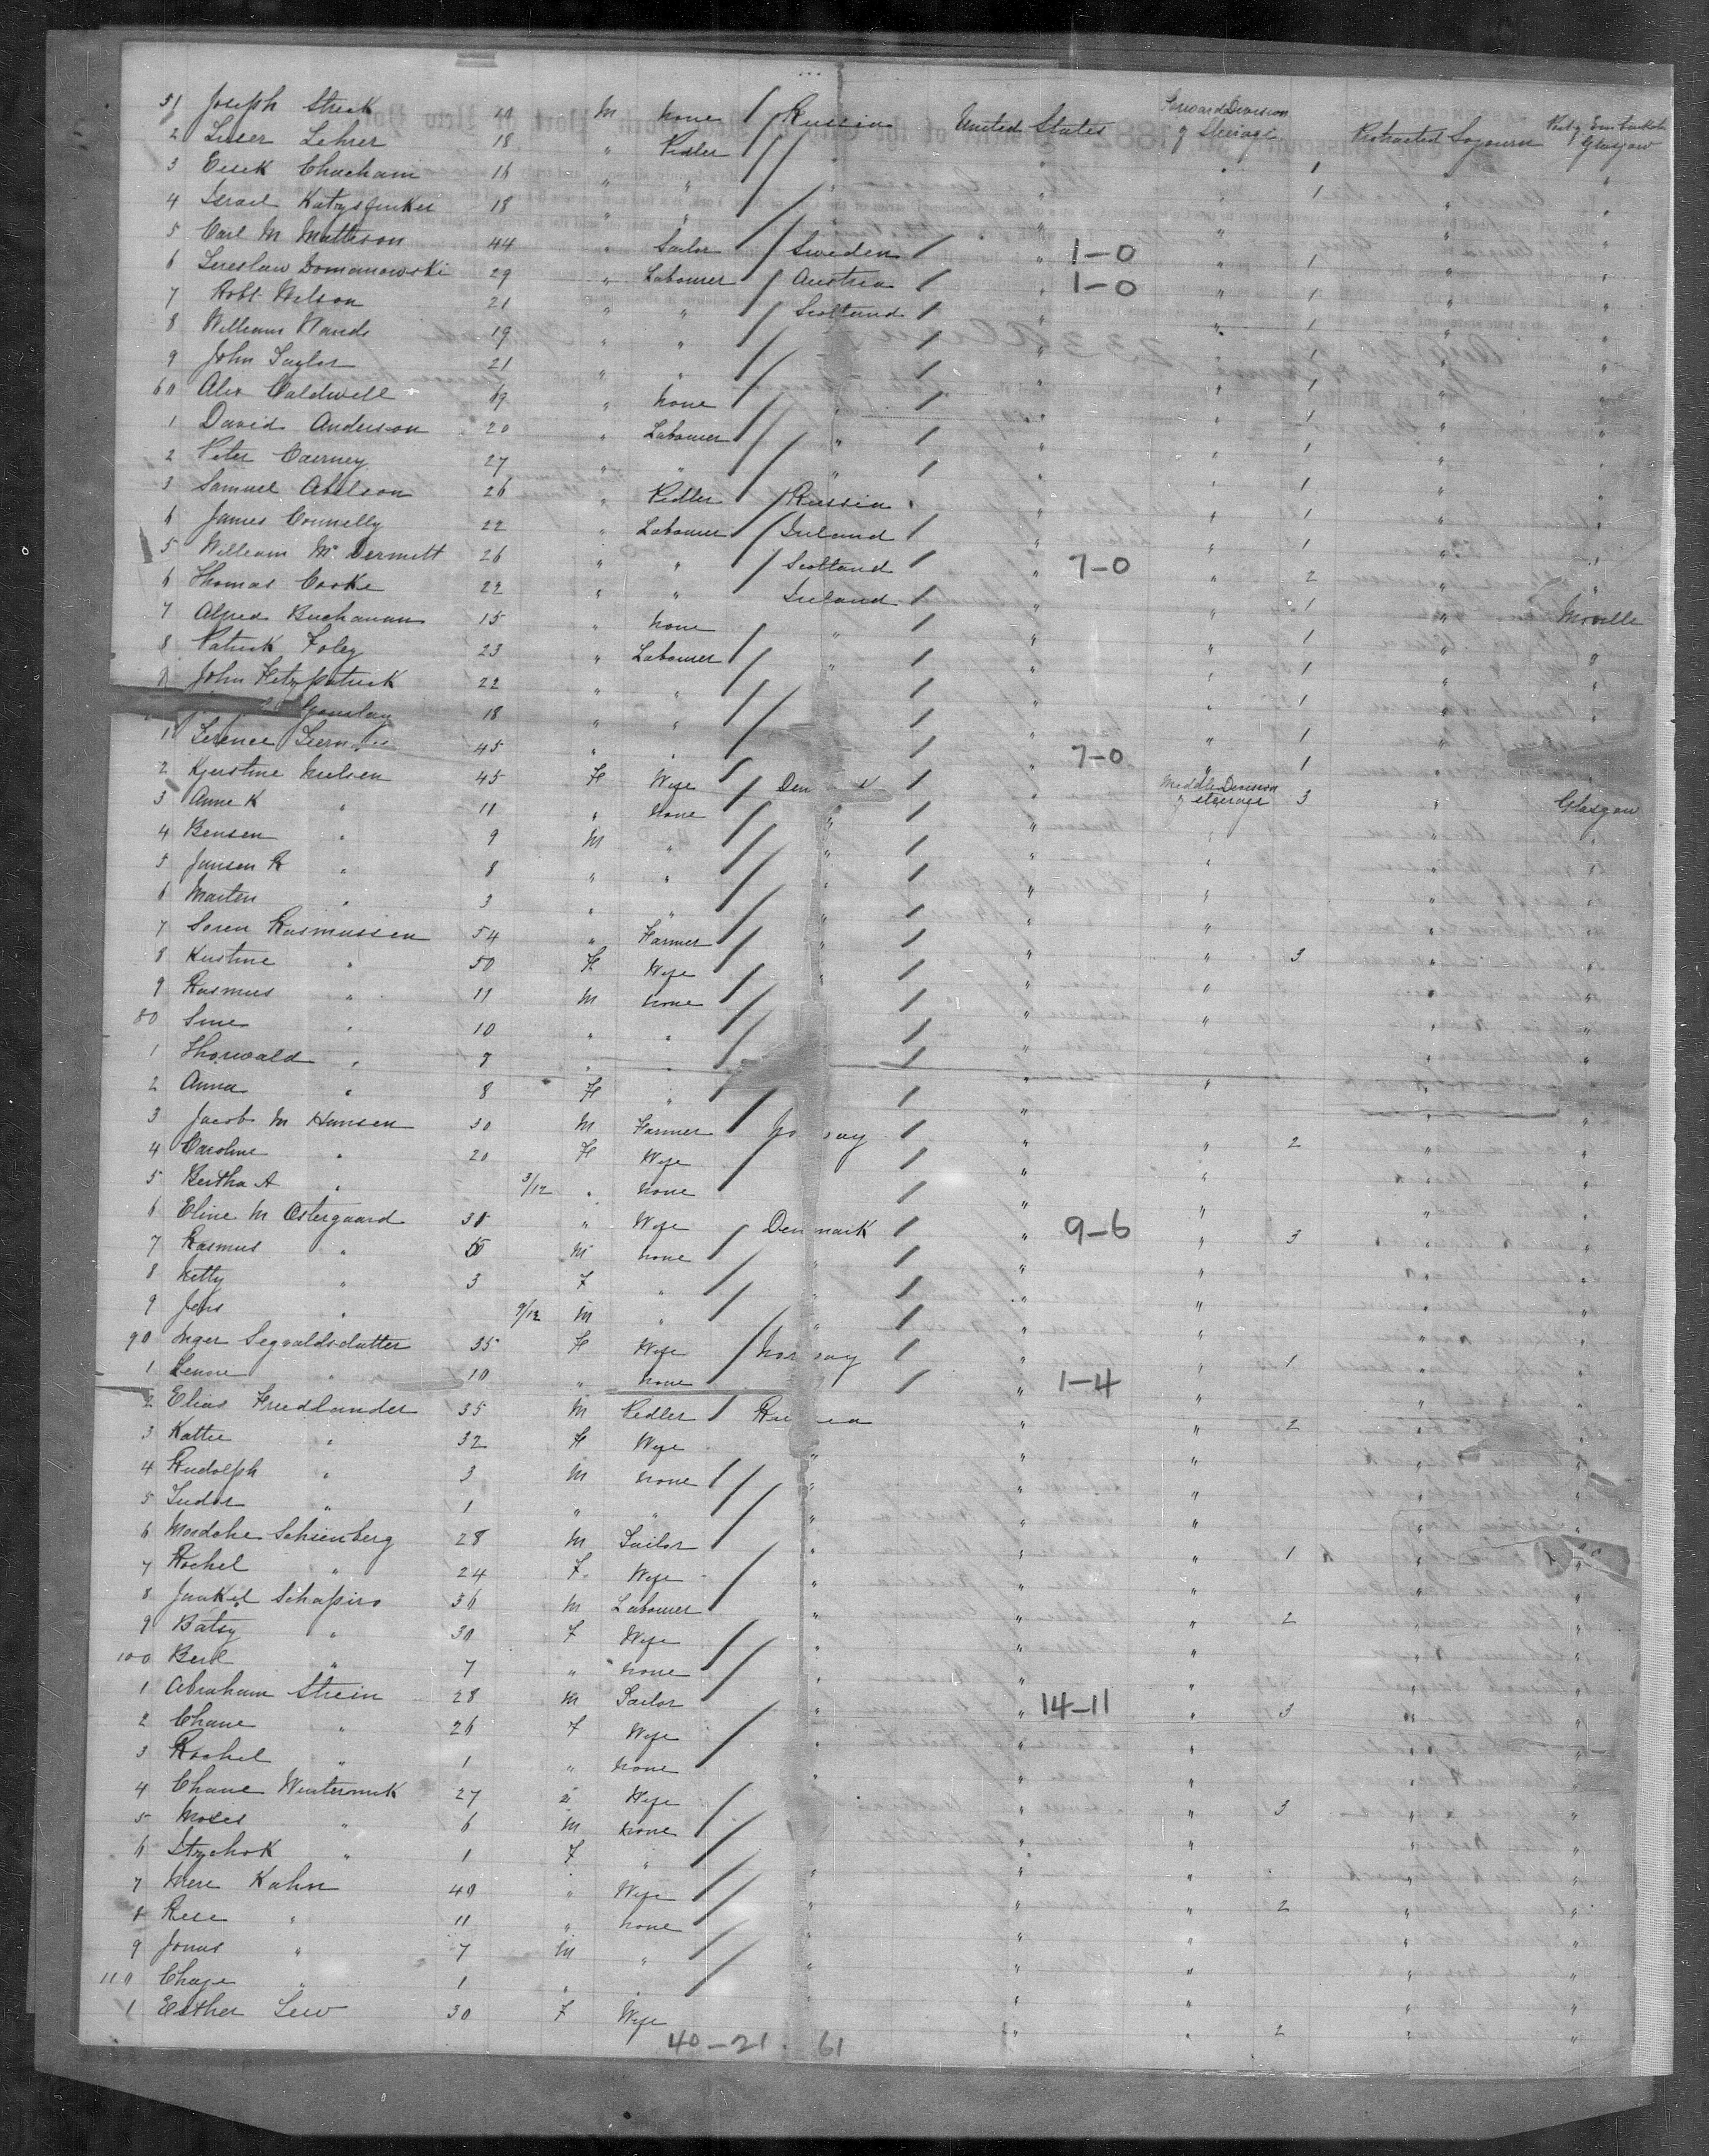 51 Joseph Streck M None Russia United States Forward Division of Steerage 1 Protracted Sojourn Glasgow
2 Leiser Lehrer 18 " Pedler " " " 1 " "
3 Eisik Chacham 16 " " " " " "
4 Israel 18 " " " " " "
5 Carl M Mattison 44 " Sailor Sweden " 1-0 " 1 " "
6 Domanowski 29 " Labourer Austria " 1-0 " 1 " "
7 Robt Wilson 21 " " Scotland " " 1 " "
8 William Wands 19 " " " " " 1 " "
9 John Taylor 21 " " " " " 1 " "
60 Alex Caldwell 19 " None " " " 1 " "
1 David Anderson 20 " Labourer " " " 1 " "
2 Peter Cairney 27 " " " " " 1 " "
3 Samuel Abelson 26 " Pedler Russia " " 1 " "
4 James Connelly 22 " Labourer Ireland " " 1 " "
5 William McDermitt 26 " " Scotland " 7-0 " 2 " "
6 Thomas Cooke 22 " " Ireland " " 1 " Moville
7 Alfred Buchanan 15 " None " " " 1 " "
8 Patrick Foley 23 " Labourer " " " 1 " "
9 John Fitzpatrick 22 " " " " " 1 " "
18 " " " " " 1 " "
1 Terence 45 " " " " 7-0 " 1 " "
2 Kjerstine Nielsen 45 F Wife Den k " Middle Division of steerage 3 " Glasgow
3 Anne K " 11 " None " " " " "
4 Bensen " 9 M " " " " " "
5 Jansen R " 8 " " " " " " "
6 Marten " 3 " " " " " " "
7 Soren Rasmussen 54 " Farmer " " " 3 " "
8 Kirstine " 50 F Wife " " " " "
9 Rasmus " 11 M None " " " " "
80 Sine " 10 " " " " " " "
1 Thorwald " 7 " " " " " " "
2 Anna " 8 F " " " " " "
3 Jacob M Hansen 30 M Farmer No way " " 2 " "
4 Caroline " 20 F Wife " " " "
5 Bertha A " 3/12 " None " " " "
6 Eline M Ostergaard 38 " Wife Denmark " 9-6 " 3 " "
7 Rasmus " M None " " " " "
8 Netty " 3 F " " " " " "
9 Jens " 9/12 M " " " " " "
90 Inger Segvaldsdatter 35 F Wife Norway " " 1 " "
1 Lenore " 10 " None " 1-4 " " "
2 Elias Friedlander 35 M Pedler Russia " " 2 " "
3 Kattie " 32 F Wife " " " " "
4 Rudolph " 3 M None " " " " "
5 Isidor " 1 " " " " " " "
6 Mordche Schienberg 28 M Tailor " " " 1 " "
7 Rochel " 24 F Wife " " " " "
8 Jankel Schapiro 36 M Labourer " " " 2 " "
9 Batsy " 30 F Wife " " " " "
100 Berl " 7 " None " " " " "
1 Abraham Strein 28 M Tailor " " 14-11 " 3 " "
2 Chane " 26 F Wife " " " " "
3 Rochel " 1 " None " " " " "
4 Chane 27 " Wife " " 3 " "
5 Moses " 6 M None " " " "
6 " 1 F " " " " " "
7 Mere Kahn 40 " Wife " " " 2 " "
8 Rese " 11 " None " " " "
9 Jonas " 7 M " " " " " "
110 Chaje " 1 " " " " " "
1 Esther Lew 30 F Wife " " 2 " "
40-21 61